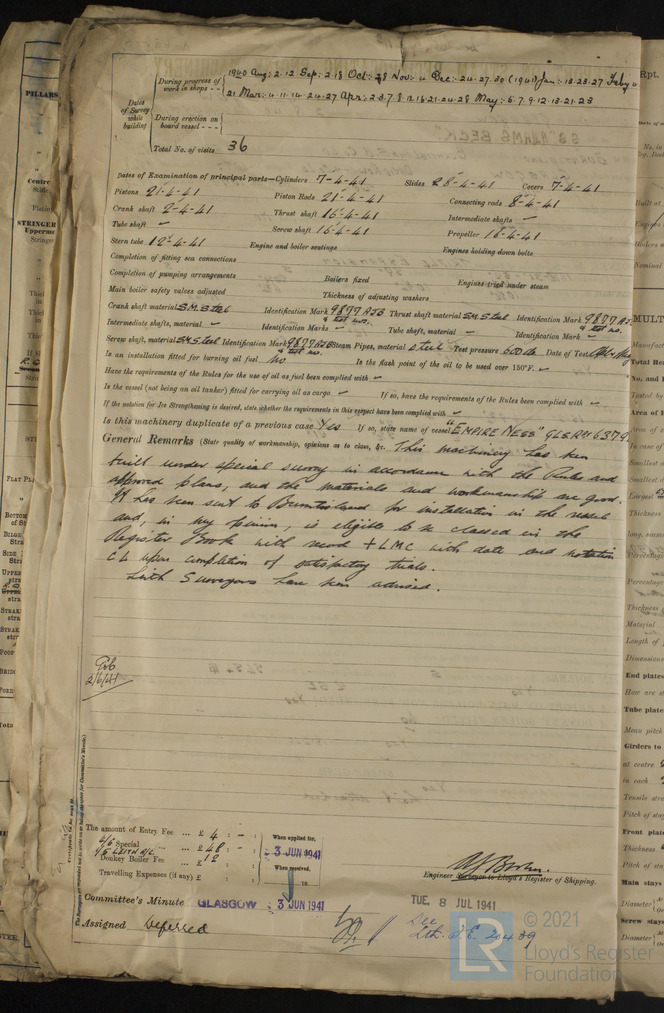 Dates of Survey while building
During progress of work in shops - -
1940 Aug: 2. 12 Sep: 2. 18 Oct: 28 Nov: 4 Dec: 24. 27. 30 (1941) Jan: 13. 23. 27 Feby 4
21 Mar: 4. 11. 14. 24. 27 Apr: 2. 3. 7. 8. 12. 16. 21. 24. 28 May: 5. 7. 9. 12. 13. 21. 23
During erection on board vessel - - -
Total No. of visits 36
Dates of Examination of principal parts—Cylinders 7-4-41 Slides 28-4-41 Covers 7-4-41
Pistons 21-4-41 Piston Rods 21-4-41 Connecting rods 8-4-41
Crank shaft 2-4-41 Thrust shaft 16-4-41 Intermediate shafts -
Tube shaft - Screw shaft 16-4-41 Propeller 16-4-41
Stern tube 12-4-41 Engine and boiler seatings Engines holding down bolts
Completion of fitting sea connections
Completion of pumping arrangements Boilers fixed Engines tried under steam
Main boiler safety valves adjusted Thickness of adjusting washers
Crank shaft material S.M. Steel Identification Mark 9877 AJB & test no. Thrust shaft material S.M. Steel Identification Mark 9877 AJ & test no.
Intermediate shafts, material - Identification Marks - Tube shaft, material - Identification Mark -
Screw shaft, material S.M. Steel Identification Mark 9877 AJB & test no. Steam Pipes, material steel Test pressure 600 lb Date of Test
Is an installation fitted for burning oil fuel No Is the flash point of the oil to be used over 150°F. -
Have the requirements of the Rules for the use of oil as fuel been complied with -
Is the vessel (not being an oil tanker) fitted for carrying oil as cargo - If so, have the requirements of the Rules been complied with -
If the notation for Ice Strengthening is desired, state whether the requirements in this respect have been complied with -
Is this machinery duplicate of a previous case Yes If so, state name of vessel "EMPIRE NESS" GLS RH 6379.
General Remarks (State quality of workmanship, opinions as to class, &c. This machinery has been
built under special survey in accordance with the Rules and
approved plans, and the materials and workmanship are good.
It has been sent to Burntisland for installation in the vessel
and, in my opinion, is eligible to be classed in the
Register Book with record + LMC with date and notation
CL upon completion of satisfactory trials.
Leith Surveyors have been advised.
2/6/41
The amount of Entry Fee ... £ 4 : -
4/5 Special ... £ 48 : -
1/5 LEITH A/C.
Donkey Boiler Fee ... £ 12
Travelling Expenses (if any) £
When applied for,
- 3 JUN 1941
When received,
19
Engineer Surveyor to Lloyd's Register of Shipping.
Committee's Minute GLASGOW 3 JUN 1941
TUE. 8 JUL 1941
Assigned Deferred
See
Lth. J.E. 20439
LR
© 2021
Lloyd's Register
Foundation
PILLARS
STRINGER
Rpt.
MULT
End plates
Tube plate
Girders to
at centre
in each
Front plate
Main stays
Screw stays